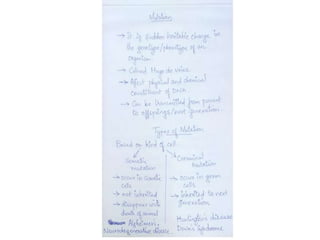 Mutation
→ It is sudden heritable change in
the genotype/phenotype of an
organism
→ Coined Hugo de vries
→ Affect physical and chemical
constituent of
→ Can be transmitted from parent
to offsprings/next generation
Types of Mutation
Based on kind of cell
Somatic
mutation
→ occur in somatic
cells
→ not inherited
→ disappear with
death of
Alzheimer,
Neurodegenerative disease
Germinal
mutation
→ occurs in germ
cells
→ inherited to next
generation
Huntington's disease
Down's syndrome